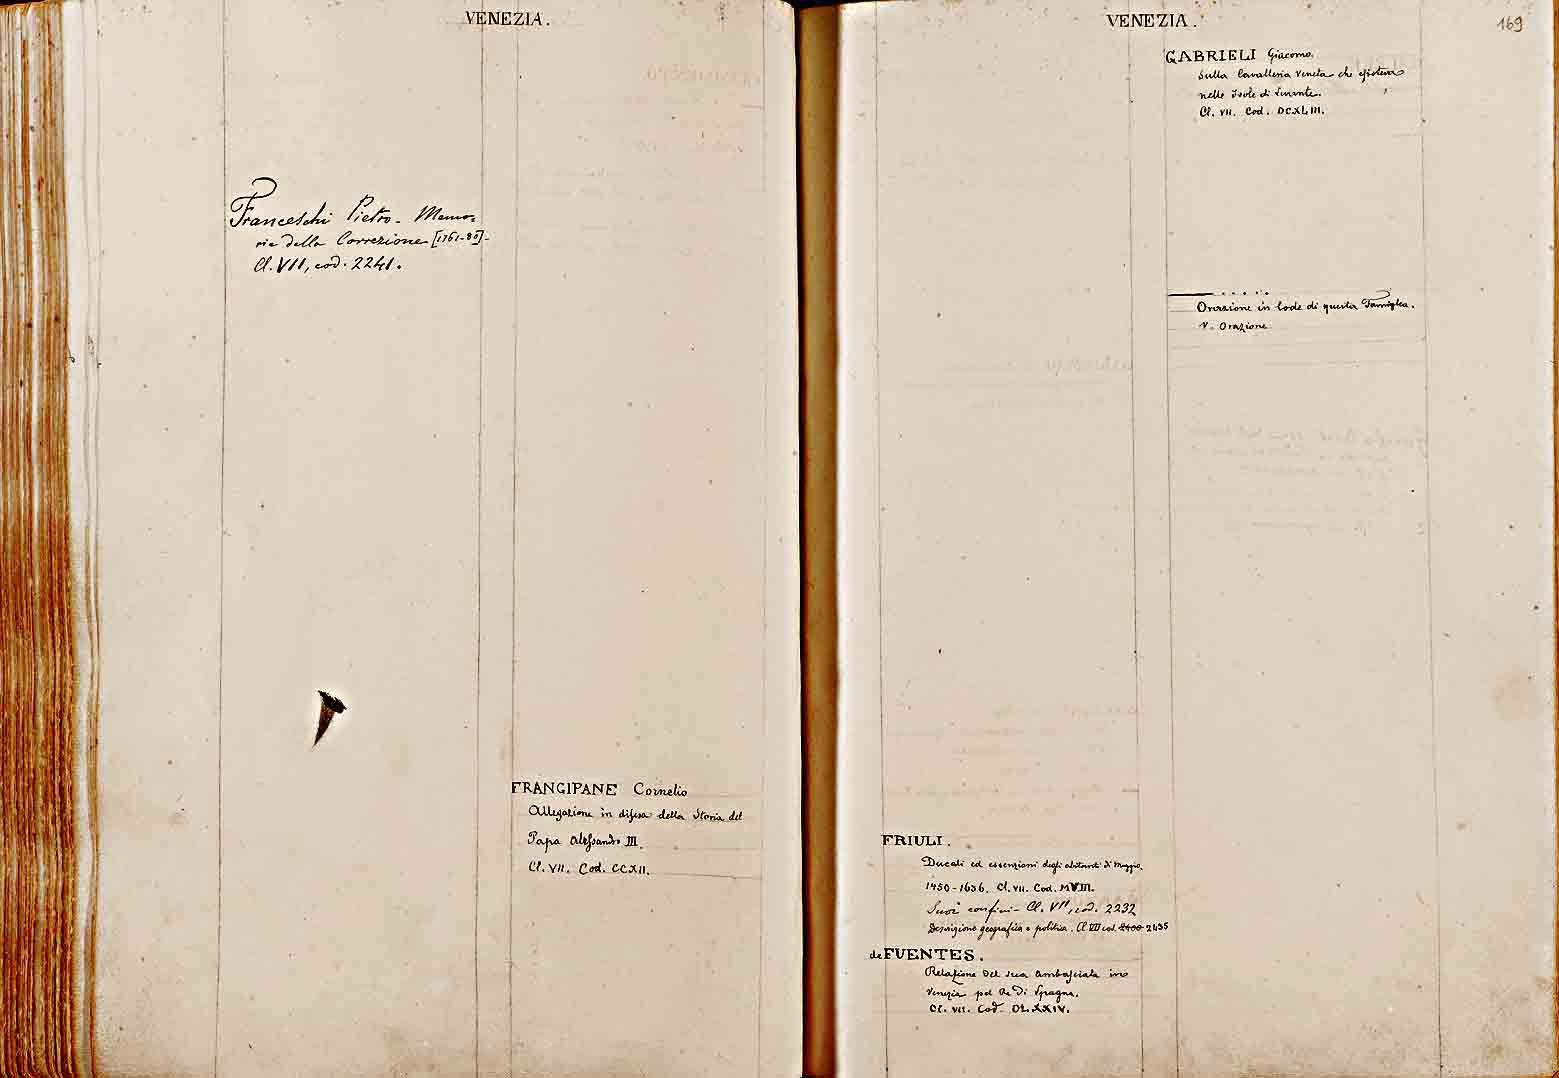 VENEZIA.
Franceschi Pietro - Memo-
rie della Correzione [1761-80]-
Cl. VII, cod. 2241.
FRANGIPANE Cornelio
Allegazione in difesa della Storia del
Papa Alessandro III.
Cl. VII. Cod. CCXII.
VENEZIA.
169
FRIULI.
Ducali ed essenzioni degli abitanti di Muggio.
1450-1636. Cl. VII. Cod. MVIII.
Suoi confini - Cl. VII, cod. 2232
Descrizione geografica e politica. Cl. VII cod. 2400 2435
de FUENTES.
Relazione del sua Ambasciata in
Venezia pel Re di Spagna.
Cl. VII. Cod. DLXXIV.
GABRIELI Giacomo.
Sulla Cavalleria Veneta che esisteva
nelle Isole di Levante.
Cl. VII. Cod. DCXLIII.
Orazione in lode di questa Famiglia.
V. Orazione